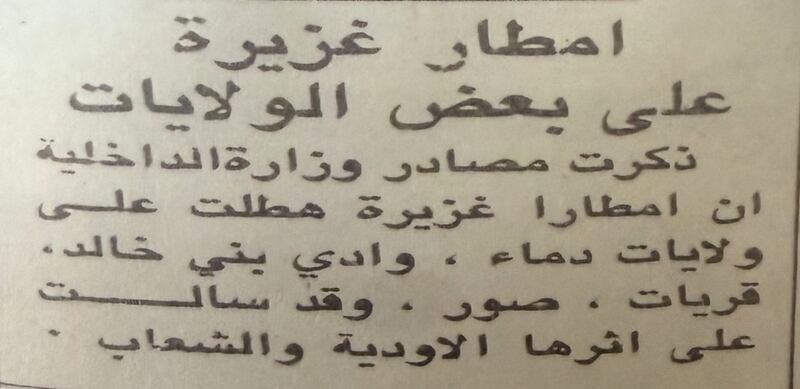 امطار غزيرة
على بعض الولايات
ذكرت مصادر وزارة الداخلية
ان امطارا غزيرة هطلت على
ولايات دماء ، وادي بني خالد،
قريات ، صور ، وقد سالت
على اثرها الاودية والشعاب .